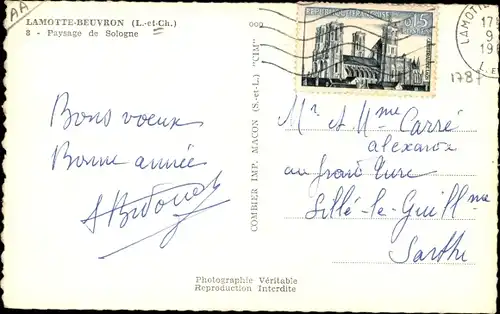 AA
LAMOTTE-BEUVRON (L.-et-Ch.)
8 - Paysage de Sologne
Bons voeux
Bonne année
COMBIER IMP. MACON (S.-et-L.) "CIM"
15
LAMOTTE
17
9
19
1787
Mr et Mme Carré
au
Sillé-le-Guillme
Sarthe
Photographie Véritable
Reproduction Interdite